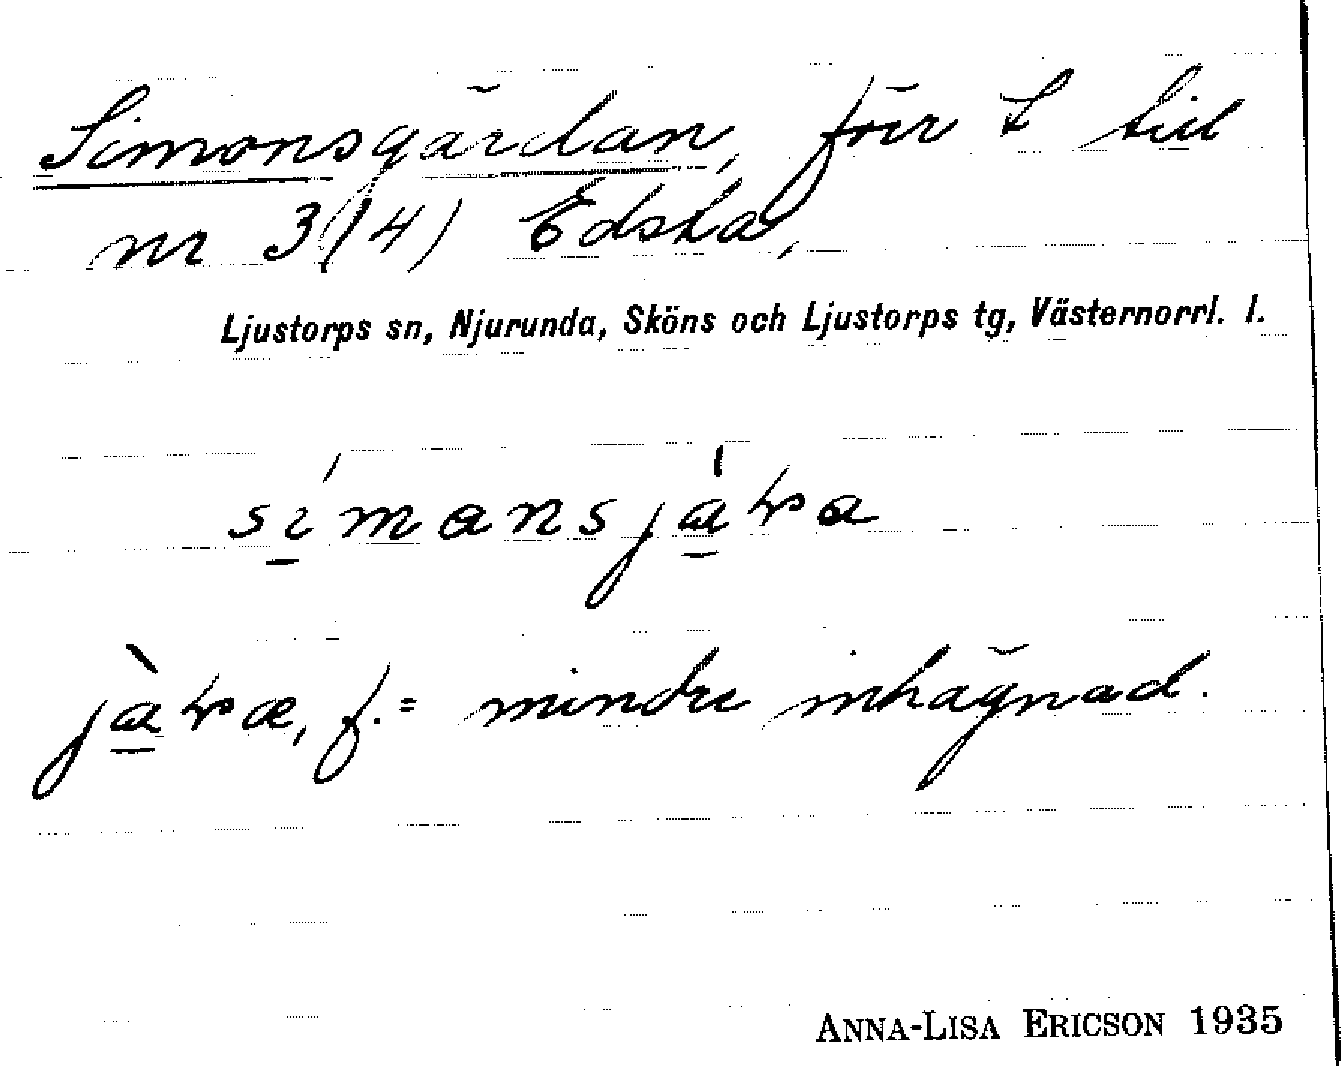 Simonsgärdan, förr t till
nr 3(4) Edsta,
Ljustorps sn, Njurunda, Sköns och Ljustorps tg, Västernorrl. l.
f. = mindre inhägnad.
ANNA-LISA ERICSON 1935